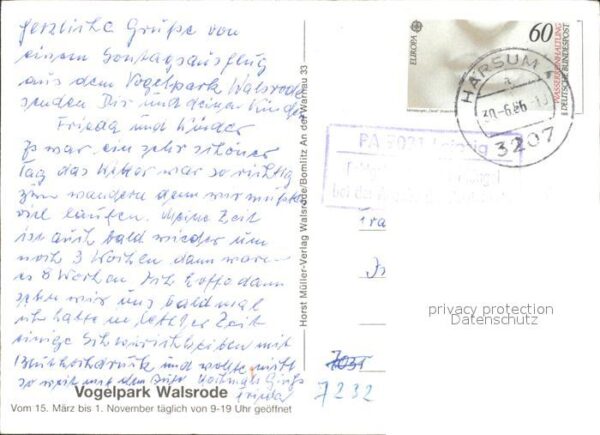 Herzliche Grüße von
einem Sontagsausflug
aus dem Vogelpark Walsrode
senden Dir und deinen Kinder
Frieda und Kinder
Es war ein sehr schöner
Tag das Wetter war so richtig
zum wandern denn wir mußten
viel laufen. Meine Zeit
ist auch bald wieder um
noch 3 Wochen dann waren
es 8 Wochen. Ich hoffe dann
sehen wir uns bald mal
ich hatte in letzter Zeit
einige Schwierichkeiten mit
Bluthochdruck und wollte nicht
so weit mit dem Auto nochmals Grüße
Frieda
Vogelpark Walsrode
Vom 15. März bis 1. November täglich von 9-19 Uhr geöffnet
Horst Müller-Verlag Walsrode/Bomlitz An der Warnau 33
EUROPA
60
WASSERREINHALTUNG
DEUTSCHE BUNDESPOST
HARSUM 1
a
30.-6.86-10
3207
PA 7021 Leipzig
bei der
privacy protection
Datenschutz
7031
7232